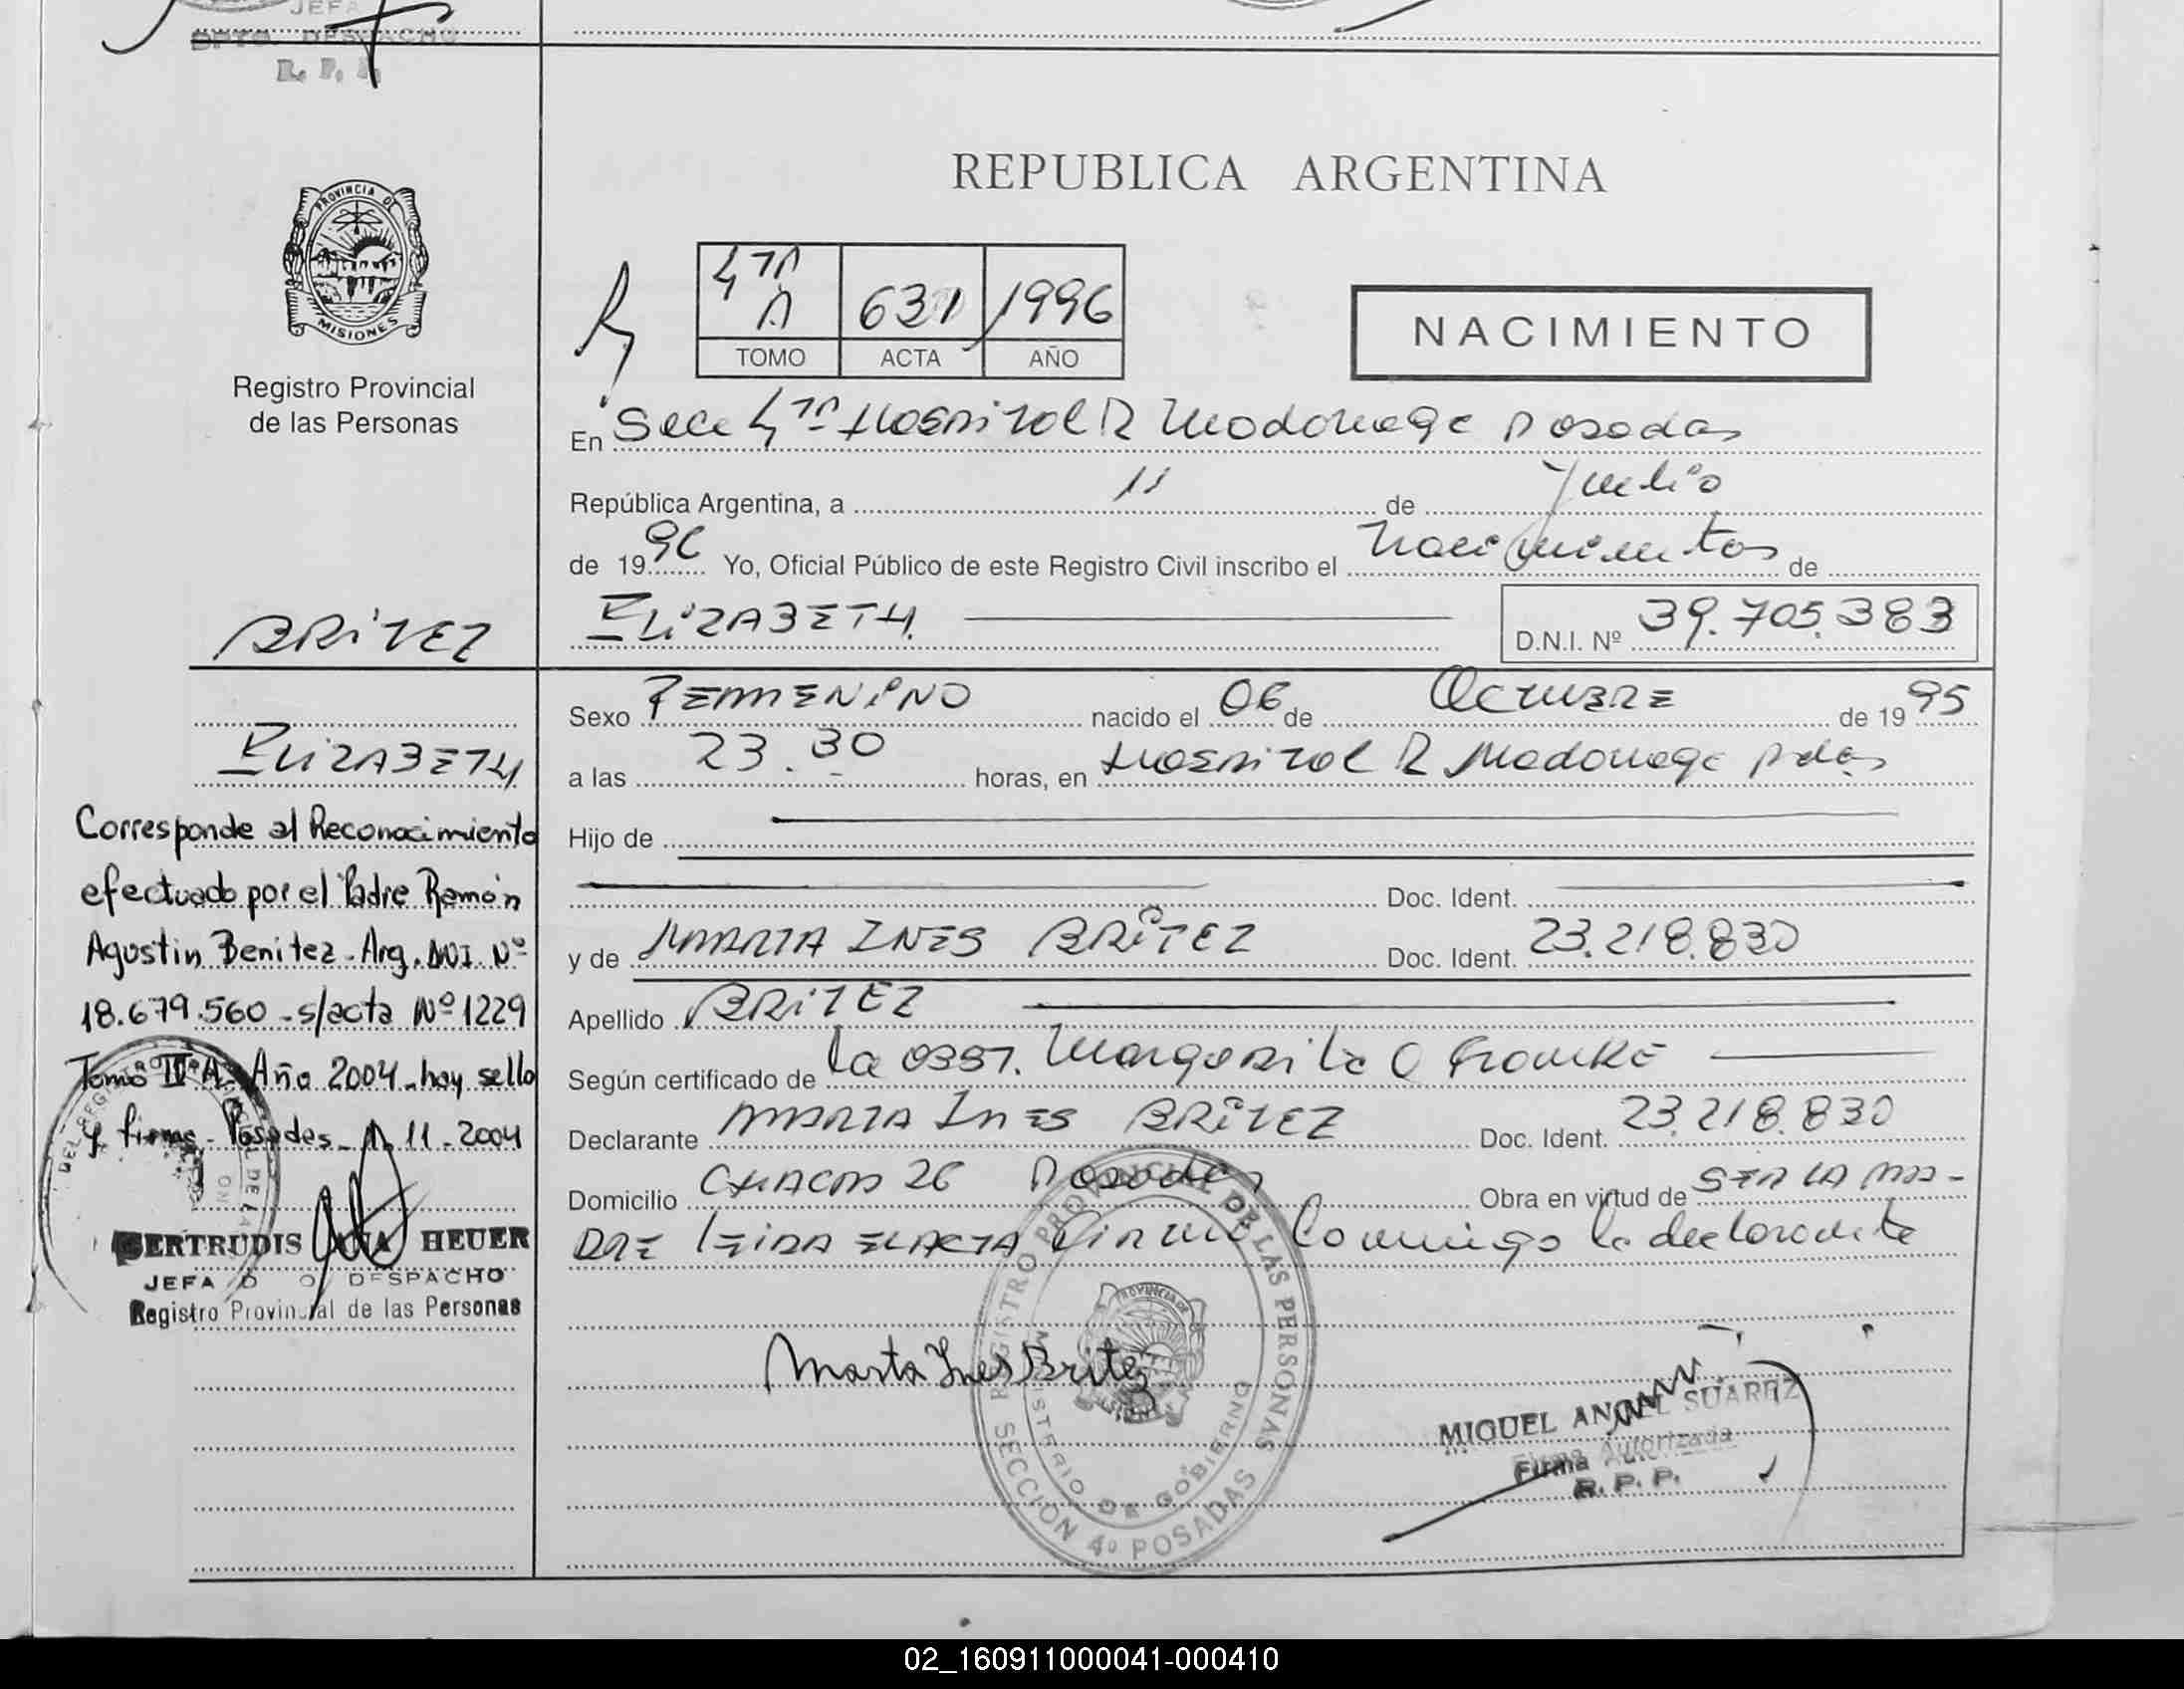 JEFA
DPTO. DESPACHO
R. P. P.
PROVINCIA DE
MISIONES
Registro Provincial
de las Personas
REPUBLICA ARGENTINA
4ta A 631 1996
TOMO ACTA AÑO
NACIMIENTO
En Secc 4ta Hospital R Madariaga Posadas
República Argentina, a 11 de Julio
de 1996 Yo, Oficial Público de este Registro Civil inscribo el Nacimientos de
ELIZABETH D.N.I. Nº 39.705.383
BRITEZ
ELIZABETH
Sexo FEMENINO nacido el 06 de OCTUBRE de 1995
a las 23.30 horas, en Hospital R Madariaga pdas
Hijo de
Doc. Ident.
y de MARTA INES BRITEZ Doc. Ident. 23.218.830
Apellido BRITEZ
Según certificado de la obst. Margarita
Declarante MARTA INES BRITEZ Doc. Ident. 23.218.830
Domicilio CHACRA 26 Posadas Obra en virtud de SER LA MA-
DRE LEIDA EL ACTA Firma Conmigo la declarante
Marta Ines Britez
REGISTRO PROVINCIAL DE LAS PERSONAS
SECCION 4º POSADAS
MINISTERIO DE GOBIERNO
PROVINCIA DE
MISIONES
MIGUEL ANGEL SUAREZ
Firma Autorizada
R. P. P.
Corresponde al Reconocimiento
efectuado por el Padre Ramón
Agustin Benitez - Arg. DNI. Nº
18.679.560 - s/acta Nº 1229
Tomo IIº A - Año 2004 - hay sello
y firmas - Posadas - 11 - 2004
GERTRUDIS HEUER
JEFA DESPACHO
Registro Provincial de las Personas
02_160911000041-000410